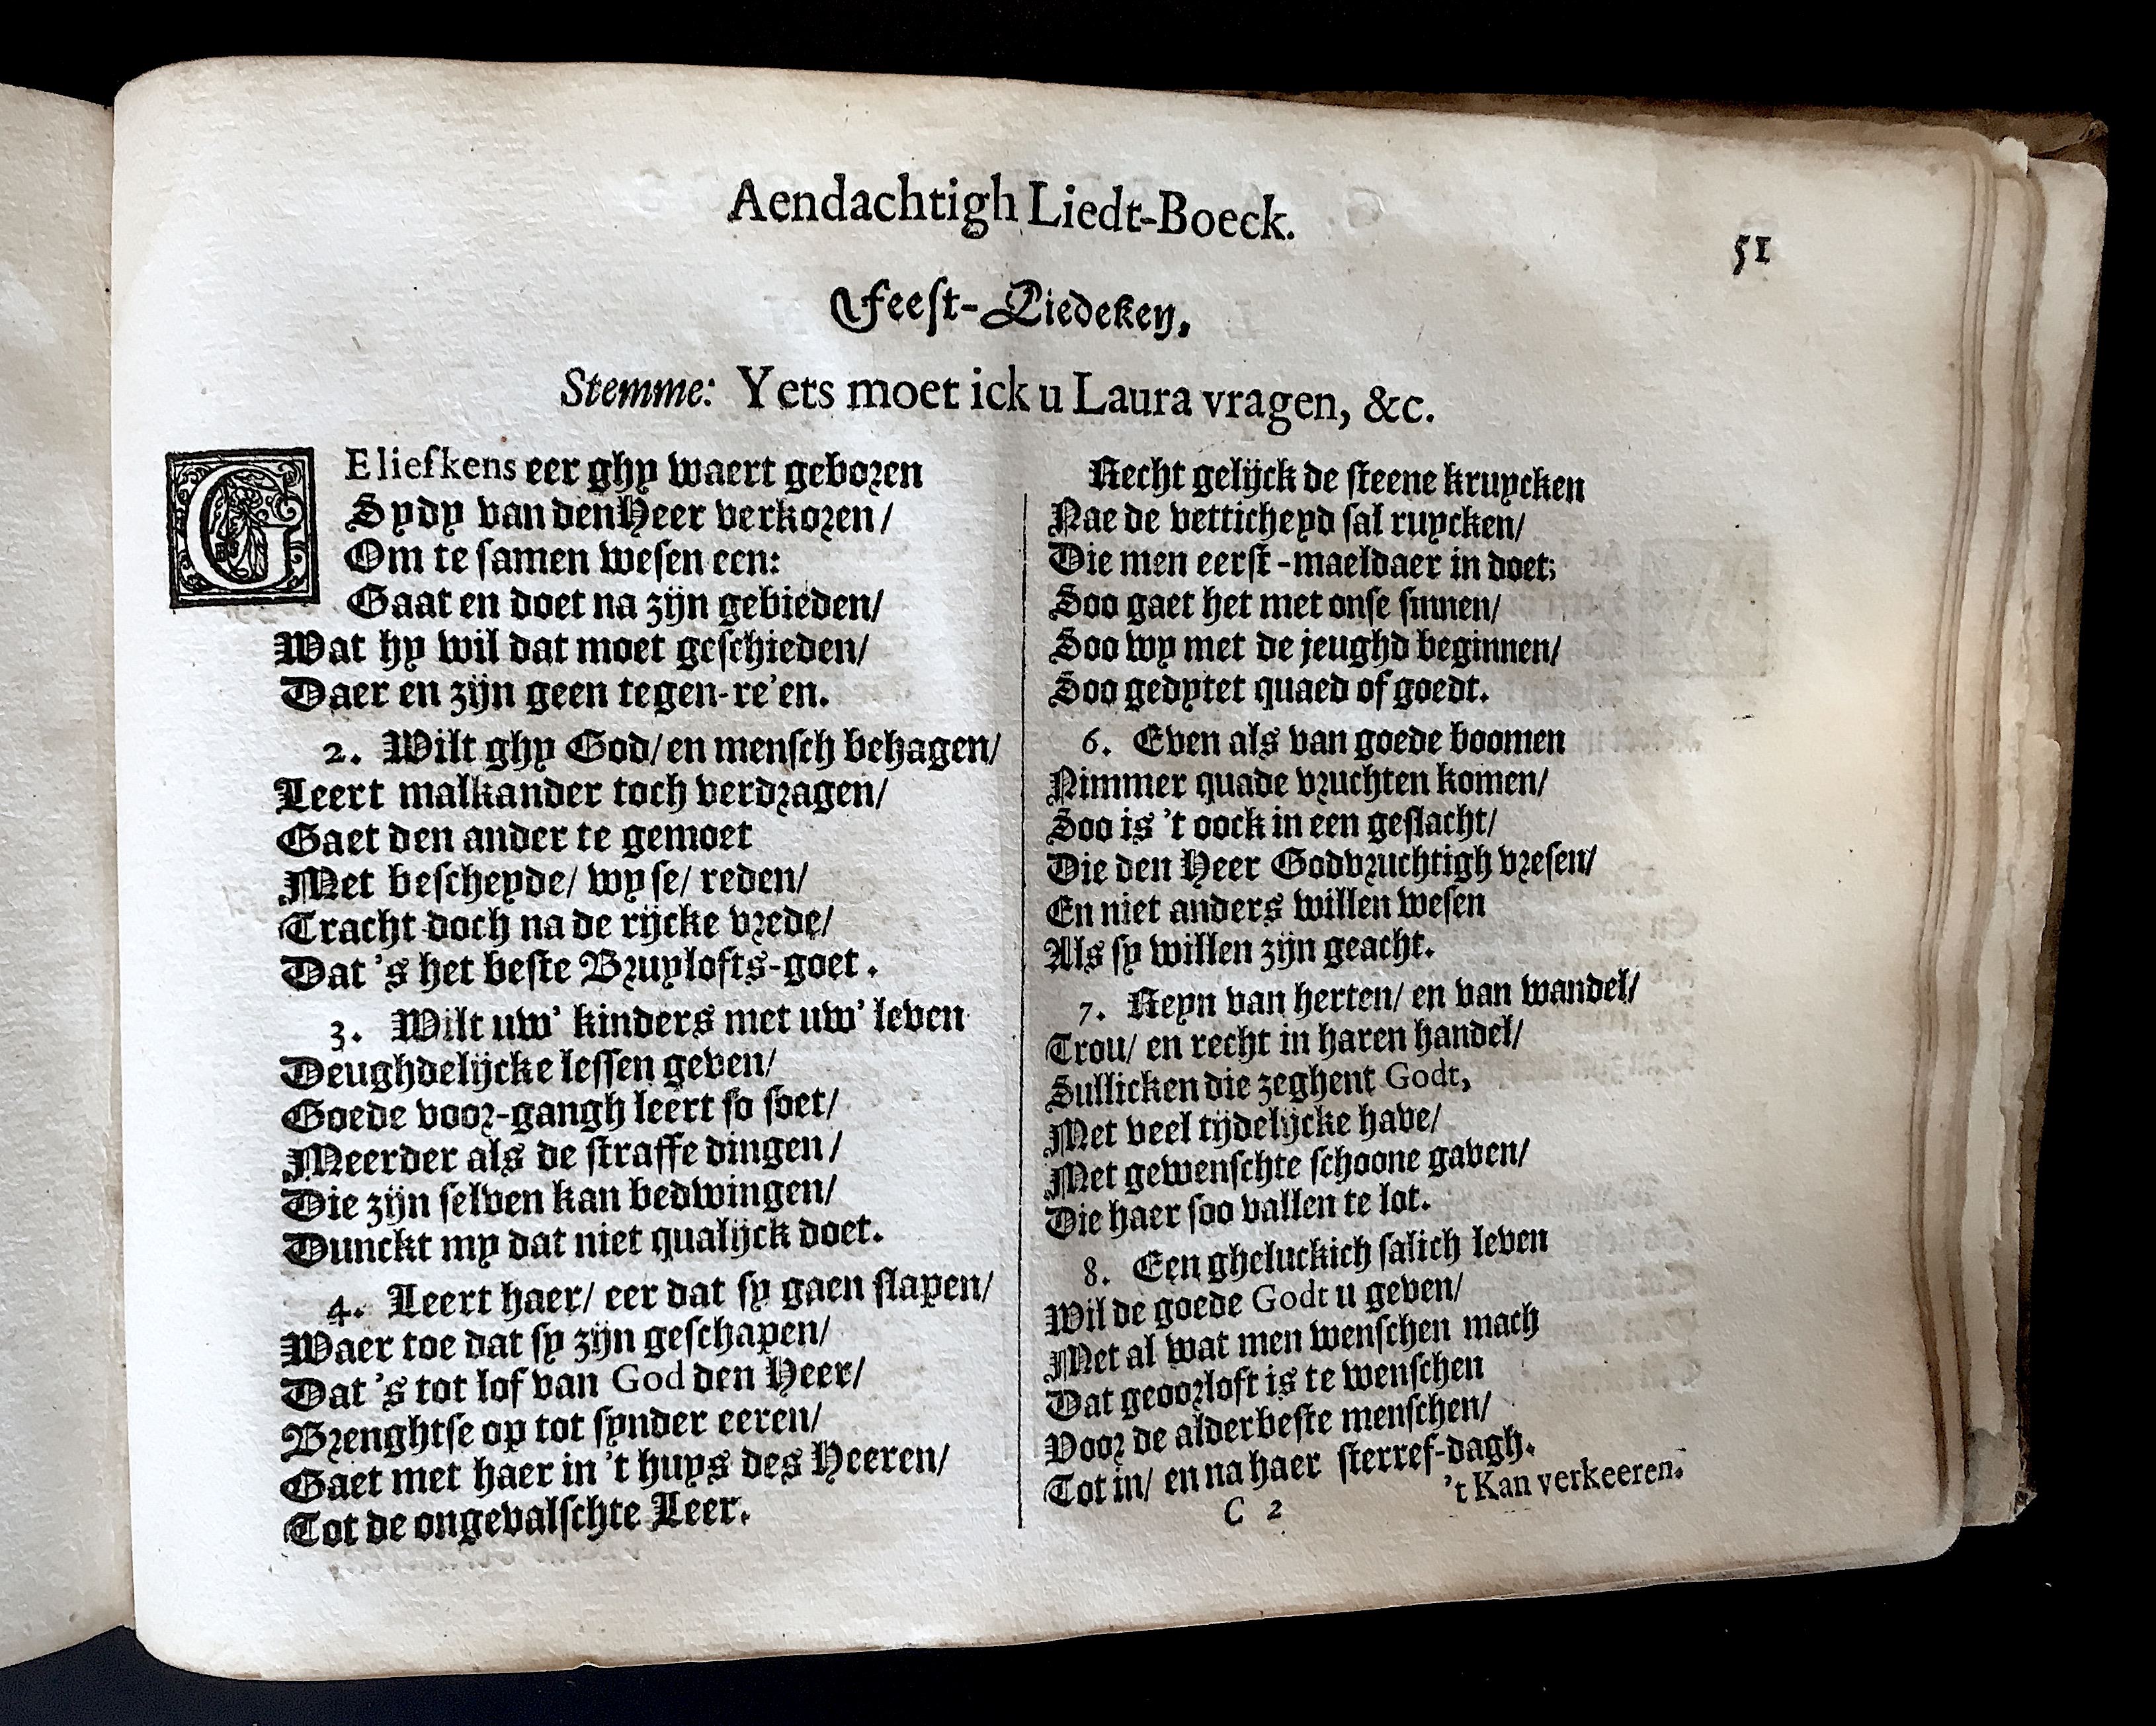 Aendachtigh Liedt-Boeck.
51
Feest-Liedeken.
Stemme: Yets moet ick u Laura vragen, &c.
GEliefkens eer ghy waert geboren
Sydy van den Heer verkoren/
Om te samen wesen een:
Gaat en doet na zijn gebieden/
Wat hy wil dat moet geschieden/
Daer en zijn geen tegen-re'en.
2. Wilt ghy God/ en mensch behagen/
Leert malkander toch verdragen/
Gaet den ander te gemoet
Met bescheyde/ wyse/ reden/
Tracht doch na de rijcke vrede/
Dat 's het beste Bruylofts-goet.
3. Wilt uw' kinders met uw' leven
Deughdelijcke lessen geven/
Goede voor-gangh leert so soet/
Meerder als de straffe dingen/
Die zijn selven kan bedwingen/
Dunckt my dat niet qualijck doet.
4. Leert haer/ eer dat sy gaen slapen/
Waer toe dat sy zijn geschapen/
Dat 's tot lof van God den Heer/
Brenghtse op tot synder eeren/
Gaet met haer in 't huys des Heeren/
Tot de ongevalschte Leer.
Recht gelijck de steene kruycken
Nae de vetticheyd sal ruycken/
Die men eerst-maeldaer in doet;
Soo gaet het met onse sinnen/
Soo wy met de jeughd beginnen/
Soo gedytet quaed of goedt.
6. Even als van goede boomen
Nimmer quade vruchten komen/
Soo is 't oock in een geslacht/
Die den Heer Godvruchtigh vresen/
En niet anders willen wesen
Als sy willen zijn geacht.
7. Reyn van herten/ en van wandel/
Trou/ en recht in haren handel/
Sullicken die zeghent Godt,
Met veel tijdelijcke have/
Met gewenschte schoone gaven/
Die haer soo vallen te lot.
8. Een gheluckich salich leven
Wil de goede Godt u geven/
Met al wat men wenschen mach
Dat geoorloft is te wenschen
Voor de alderbeste menschen/
Tot in/ en na haer sterref-dagh.
't Kan verkeeren.
C 2